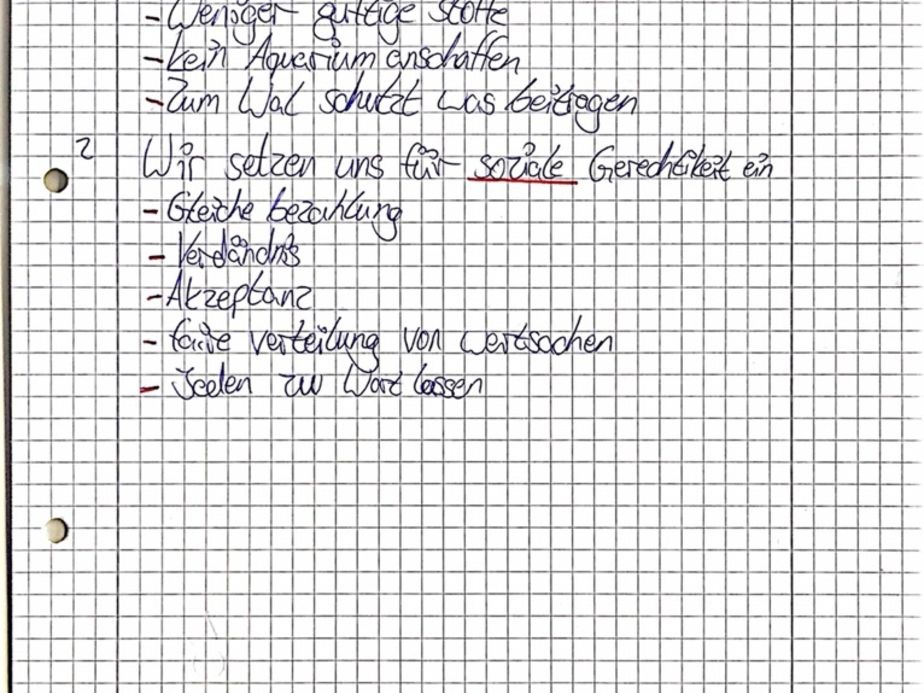 - Weniger giftige Stoffe
- kein Aquarium anschaffen
- Zum Wal schutzt was beitragen
2 Wir setzen uns für soziale Gerechtikeit ein
- Gleiche bezahlung
- Verdändnis
- Akzeptanz
- faire verteilung von wertsachen
- Jeden zu Wort lassen